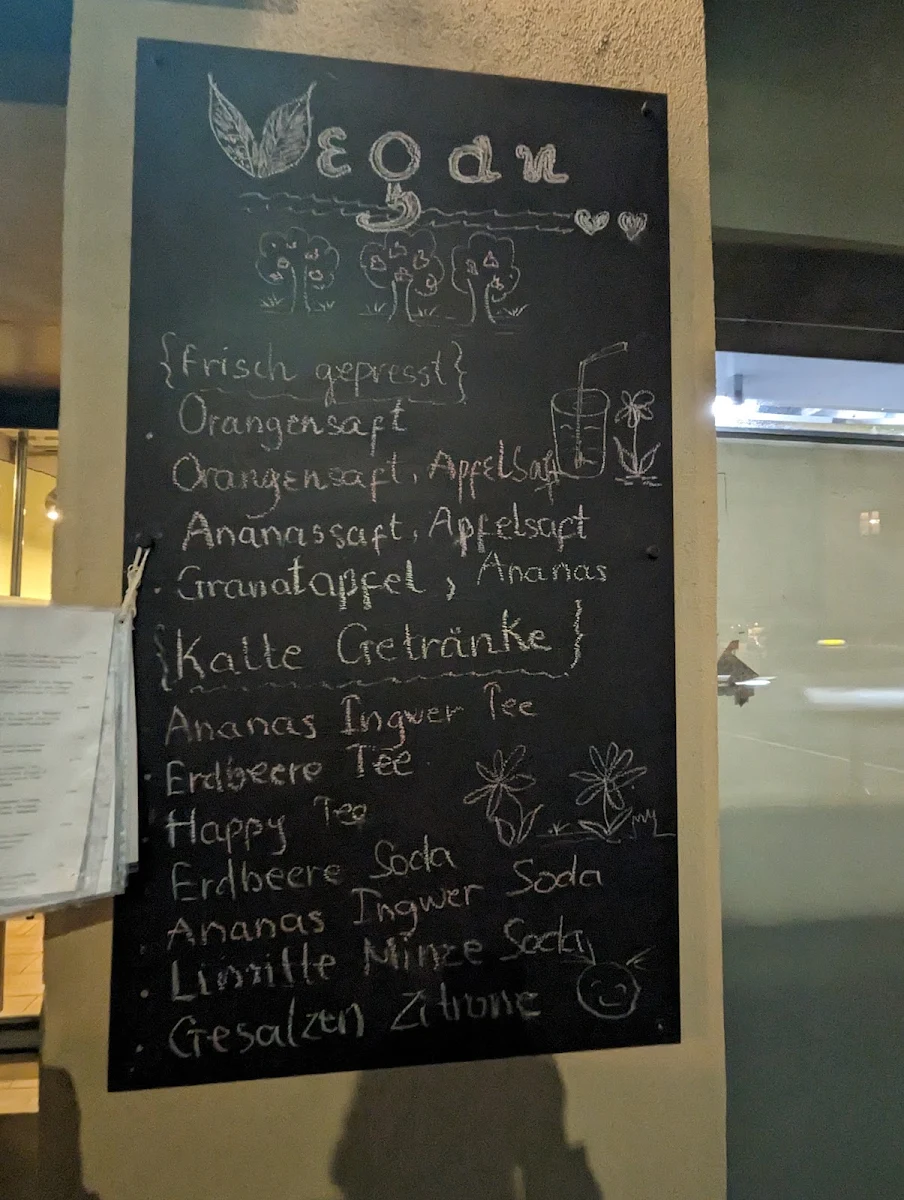 Vegan
{Frisch gepresst}
. Orangensaft
Orangensaft, Apfelsaft
Ananassaft, Apfelsaft
. Granatapfel, Ananas
{Kalte Getränke}
Ananas Ingwer Tee
. Erdbeere Tee
. Happy Tee
Erdbeere Soda
. Ananas Ingwer Soda
. Limitte Minze Soda
. Gesalzen Zitrone